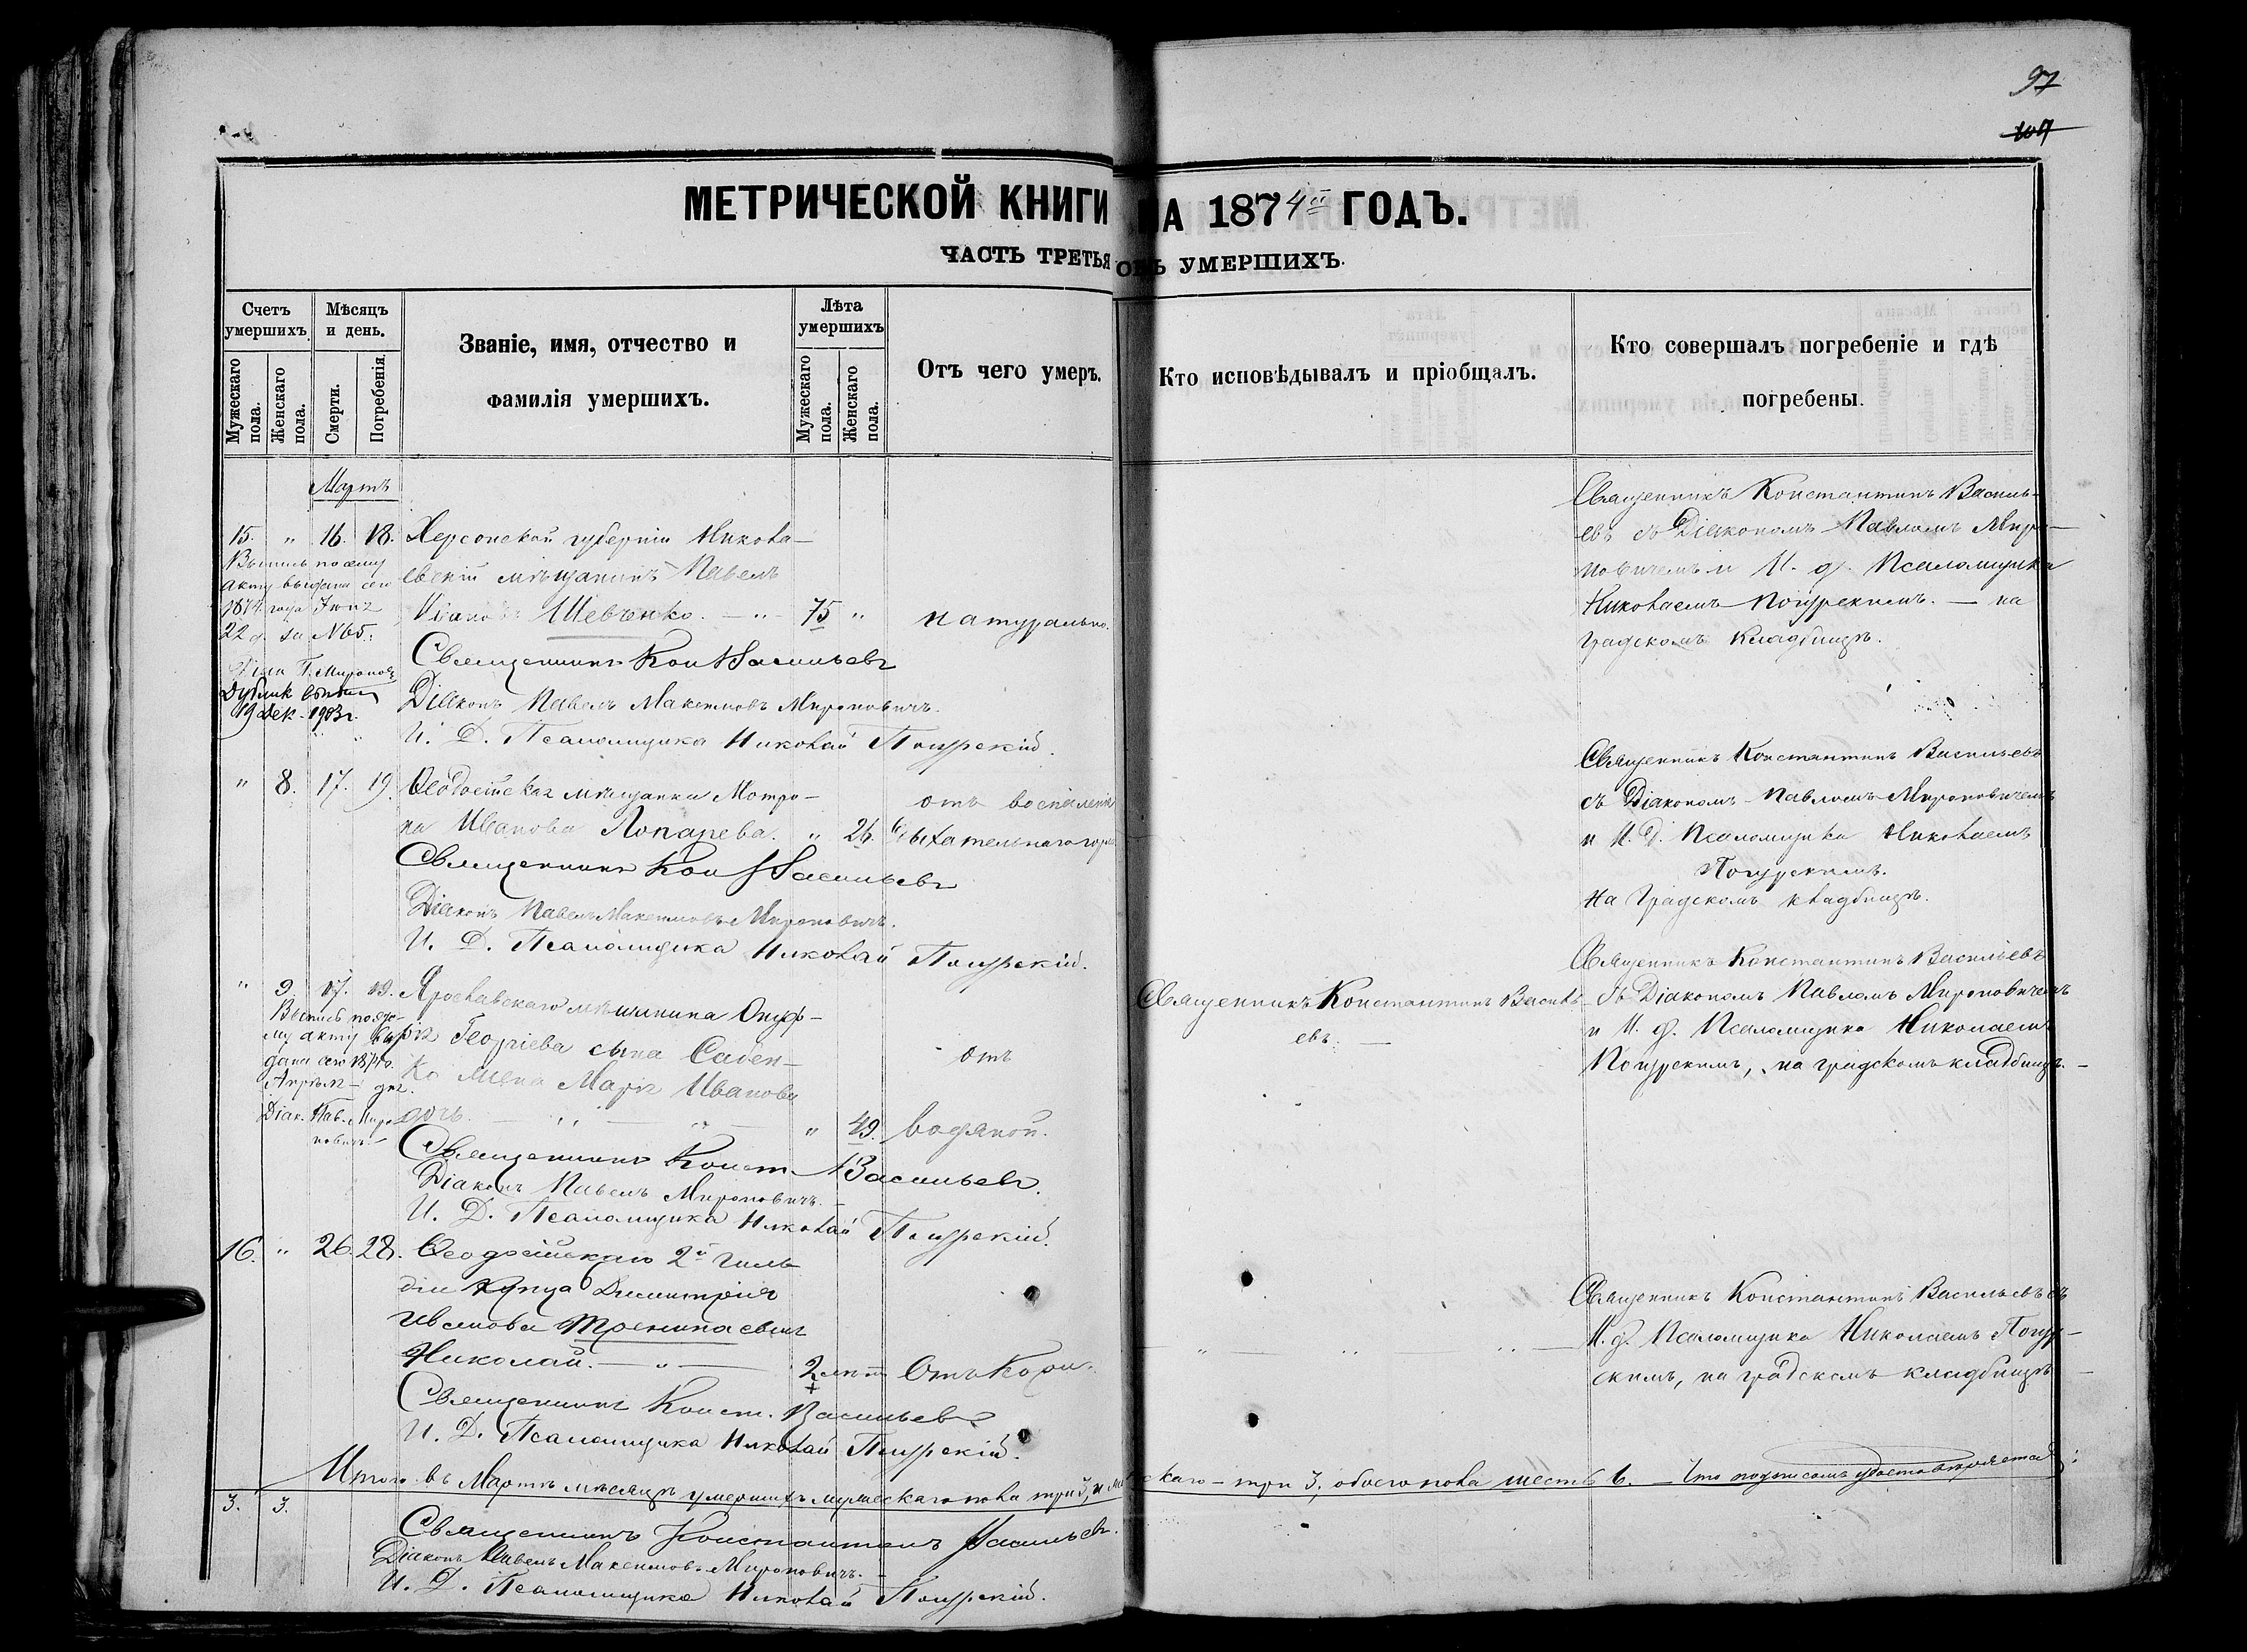 97
107
МЕТРИЧЕСКОЙ КНИГИ НА 1874й ГОДЪ.
ЧАСТЬ ТРЕТЬЯ ОБЪ УМЕРШИХЪ.
Счетъ умершихъ.
Мужескаго пола.
Женскаго пола.
Мѣсяцъ и день.
Смерти.
Погребенія.
Званіе, имя, отчество и
фамилія умершихъ.
Лѣта умершихъ
Мужескаго пола.
Женскаго пола.
Отъ чего умеръ.
Кто исповѣдывалъ и пріобщалъ.
Кто совершалъ погребеніе и гдѣ
погребены.
Мартъ
15. " 16. 18. Херсонской губерніи Никола-
евскій мѣщанинъ Павелъ
Ивановъ Шевченко. — " — 75 " натурально.
Выпись по сему
акту выдана сего
1874 года Іюня
22 д. за № 65.
Діак. П. Мироновичъ
Дублик
19 Дек. 1903 г.
Священникъ Кон Васильевъ
Діаконъ Павелъ Максимовъ Мироновичъ.
И. Д. Псаломщика Николай
Священникъ Константинъ Василь-
евъ съ Діакономъ Павломъ Миро-
новичемъ и И. д. Псаломщика
Николаемъ — на
градскомъ кладбищѣ.
" 8. 17. 19. Ѳеодосійская мѣщанка Мотро-
на Иванова Лопарева. " 26. отъ воспаленія
дыхательнаго горла
Священникъ Кон Васильевъ
Діаконъ Павелъ Максимовъ Мироновичъ.
И. Д. Псаломщика Николай
Священникъ Константинъ Васильевъ
съ Діакономъ Павломъ Мироновичемъ
и И. Д. Псаломщика Николаемъ
На Градскомъ кладбищѣ.
" 9. 17. 19. Ярославскаго мѣщанина Онуф-
рія Георгіева сына
жена Марія Иванова
дочь. — " — " — " 49. отъ водяной.
Выпись по се-
му акту вы-
дана сего 1874 г.
Апрѣля дня.
Діак. Пав. Миро-
новичъ.
Священникъ Конст. Васильевъ.
Діаконъ Павелъ Мироновичъ.
И. Д. Псаломщика Николай
Священникъ Константинъ Василь-
евъ. —
Священникъ Константинъ Васильевъ
съ Діакономъ Павломъ Мироновичемъ
и И. д. Псаломщика Николаемъ
на градскомъ кладбищѣ. —
16. " 26. 28. Ѳеодосійскаго 2й гиль-
діи купца Димитрія
Иванова сынъ
Николай. — " — 2 лѣтъ Отъ Кори.
Священникъ Конст. Васильевъ
И. Д. Псаломщика Николай
Священникъ Константинъ Васильевъ съ
И. д. Псаломщика Николаемъ
на градскомъ кладбищѣ —
Итого въ Мартѣ мѣсяцѣ умершихъ мужескаго пола три 3, и женскаго – три 3, обоего пола шесть 6. — Что подписомъ удостовѣряется:
3. 3.
Священникъ Константинъ Васильевъ.
Діаконъ Павелъ Максимовъ Мироновичъ. —
И. Д. Псаломщика Николай